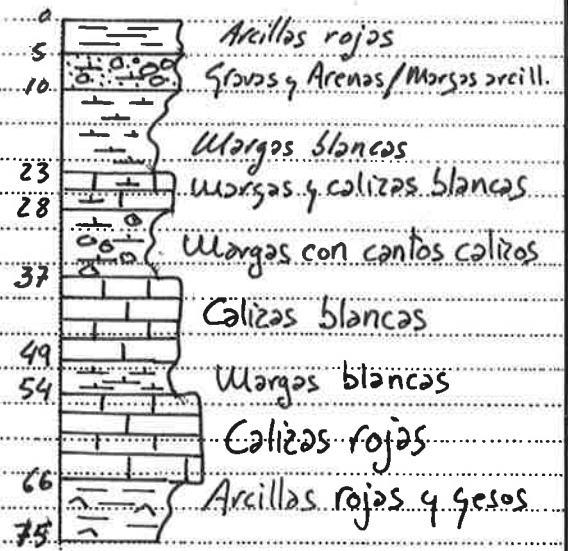 0
Arcillas rojas
5
Gravas y Arenas/Margas arcill.
10
Margas blancas
23
Margas y calizas blancas
28
Margas con cantos calizos
37
Calizas blancas
49
Margas blancas
54
Calizas rojas
66
Arcillas rojas y yesos
75